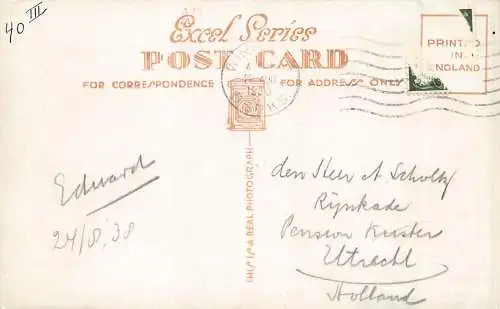 40 III
Excel Series
POST CARD
FOR CORRESPONDENCE
FOR ADDRESS ONLY
PRINTED
IN
ENGLAND
THIS IS A REAL PHOTOGRAPH
Edward
24/8.'38
den Heer A. Scholtz
Rijnkade
Pension Kuster
Utrecht
Holland